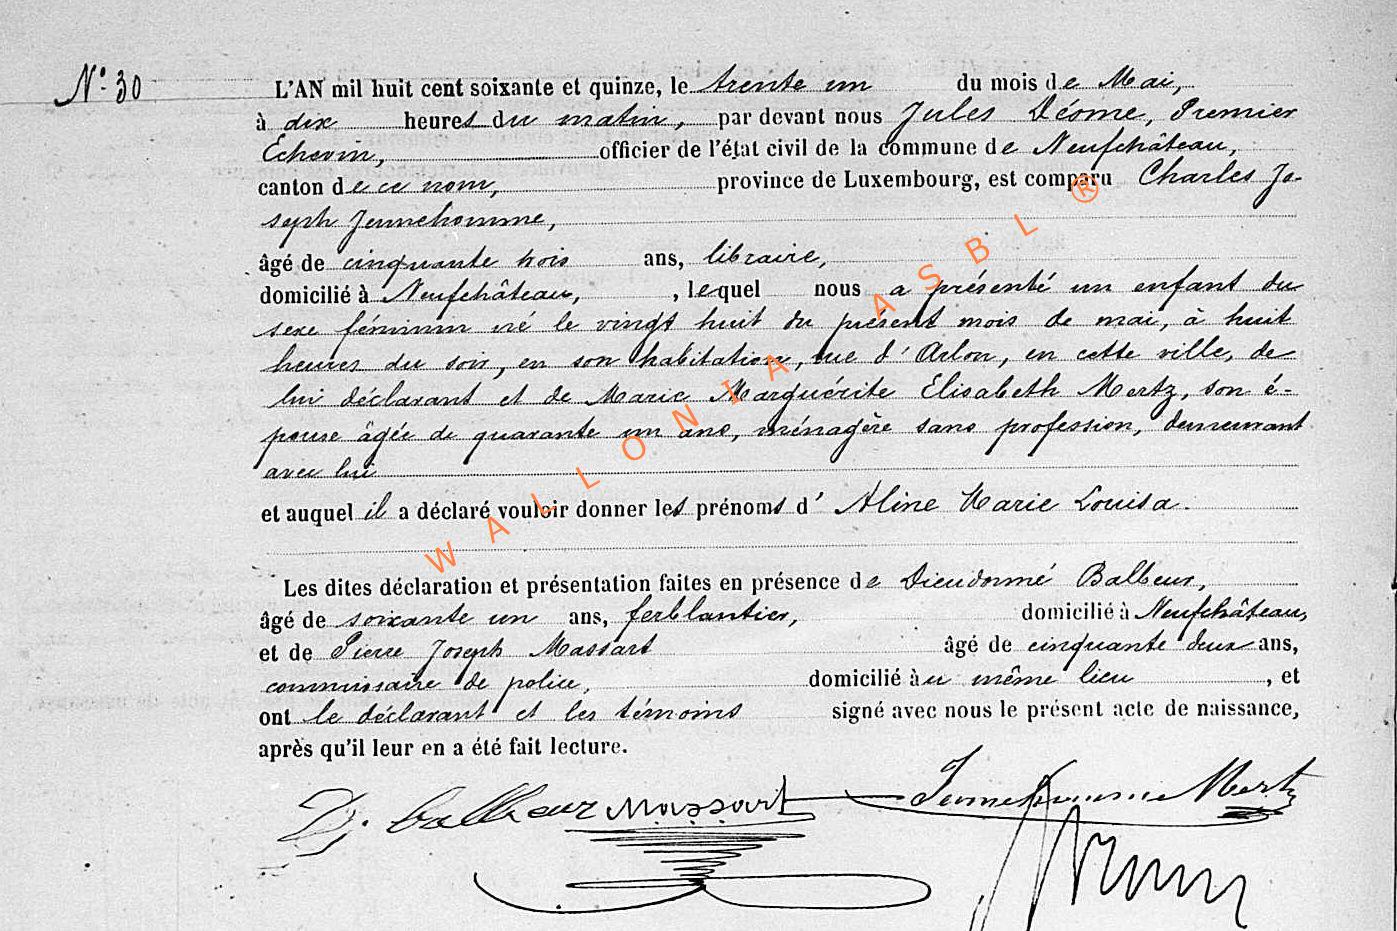 N° 30
L'AN mil huit cent soixante et quinze, le trente un du mois de Mai,
à dix heures du matin, par devant nous Jules Déome, Premier
Echevin, officier de l'état civil de la commune de Neufchâteau,
canton de ce nom, province de Luxembourg, est comparu Charles Jo-
seph Jeunehomme,
âgé de cinquante trois ans, libraire,
domicilié à Neufchâteau, , lequel nous a présenté un enfant du
sexe féminin né le vingt huit du présent mois de mai, à huit
heures du soir, en son habitation, rue d'Arlon, en cette ville, de
lui déclarant et de Marie Marguérite Elisabeth Mertz, son é-
pouse âgée de quarante un ans, ménagère sans profession, demeurant
avec lui
et auquel il a déclaré vouloir donner les prénoms d' Aline Marie Louisa.
Les dites déclaration et présentation faites en présence de Dieudonné Balbeur,
âgé de soixante un ans, ferblantier, domicilié à Neufchâteau,
et de Pierre Joseph Massart âgé de cinquante deux ans,
commissaire de police, domicilié au même lieu , et
ont le déclarant et les témoins signé avec nous le présent acte de naissance,
après qu'il leur en a été fait lecture.
D. balbeur Massart Jeunehomme Mertz
WALLONIA ASBL ®